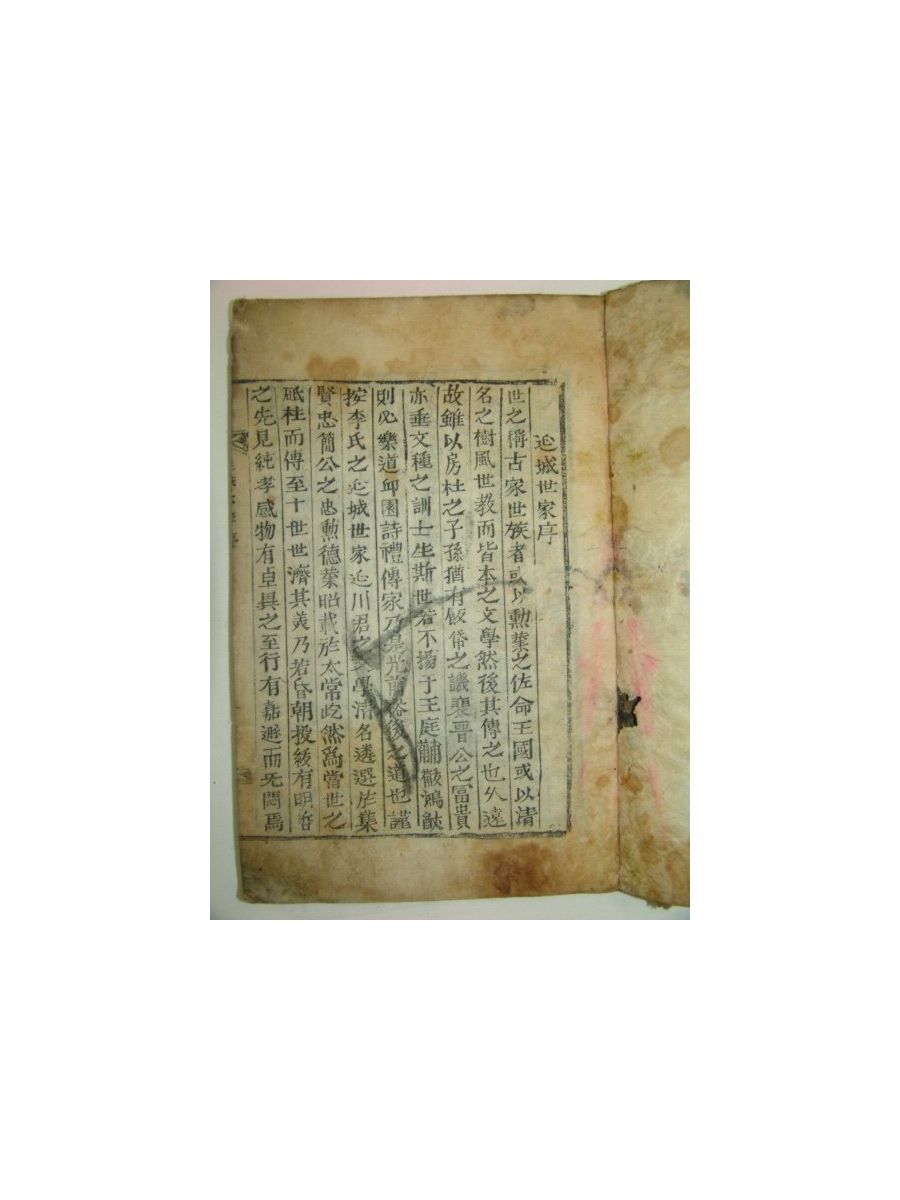 延城世家序
世之稱古家世族者或以勳業之佐命王國或以清
名之樹風世教而皆本之文學然後其傳之也久遠
故雖以房杜之子孫猶有餕俻之譏裵晋公之冨貴
亦垂文種之訓士生斯世若不揚于王庭黼黻鴻猷
則必樂道邱園詩禮傳家乃是光前裕後之道也謹
按李氏之延城世家延川君之文學清名遴選於集
賢忠簡公之忠勳德業昭載於太常屹然爲當世之
砥柱而傳至十世世濟其美乃若昏朝投綬有明哲
之先見純孝感物有卓異之至行有嘉遯而无悶焉